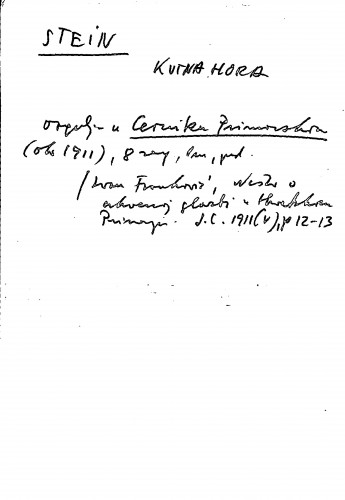 STEIN
KUTNA HORA
orgulje u Cerniku Primorskom
(oko 1911), 8 reg, 1m, ped.
/Ivan Franković, Nešto o
crkvenoj glazbi u Hrvatskom
Primorju. S.C. 1911(V), p 12-13